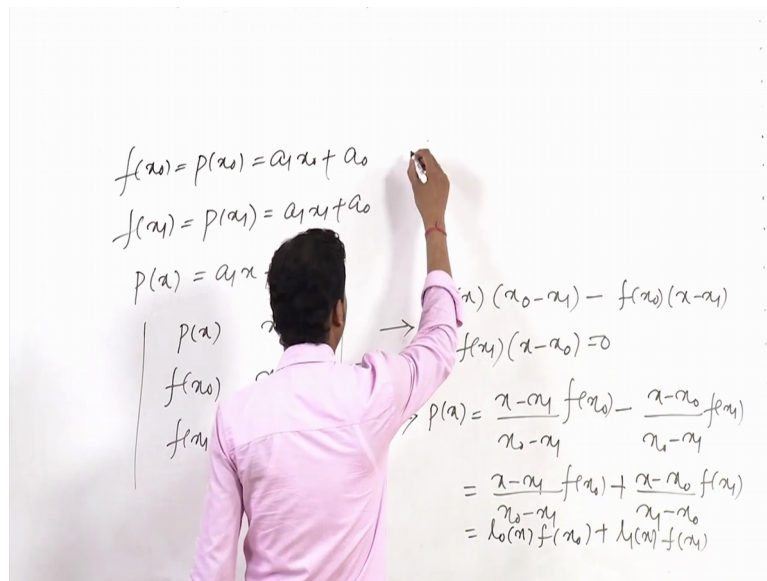 f(x₀) = P(x₀) = a₁x₀ + a₀
f(x₁) = P(x₁) = a₁x₁ + a₀
P(x) = a₁x
P(x)
f(x₀)
f(x₁
→ x) (x₀-x₁) - f(x₀) (x-x₁)
f(x₁) (x-x₀) = 0
P(x) = \frac{x-x₁}{x₀-x₁} f(x₀) - \frac{x-x₀}{x₀-x₁} f(x₁)
= \frac{x-x₁}{x₀-x₁} f(x₀) + \frac{x-x₀}{x₁-x₀} f(x₁)
= l₀(x) f(x₀) + l₁(x) f(x₁)